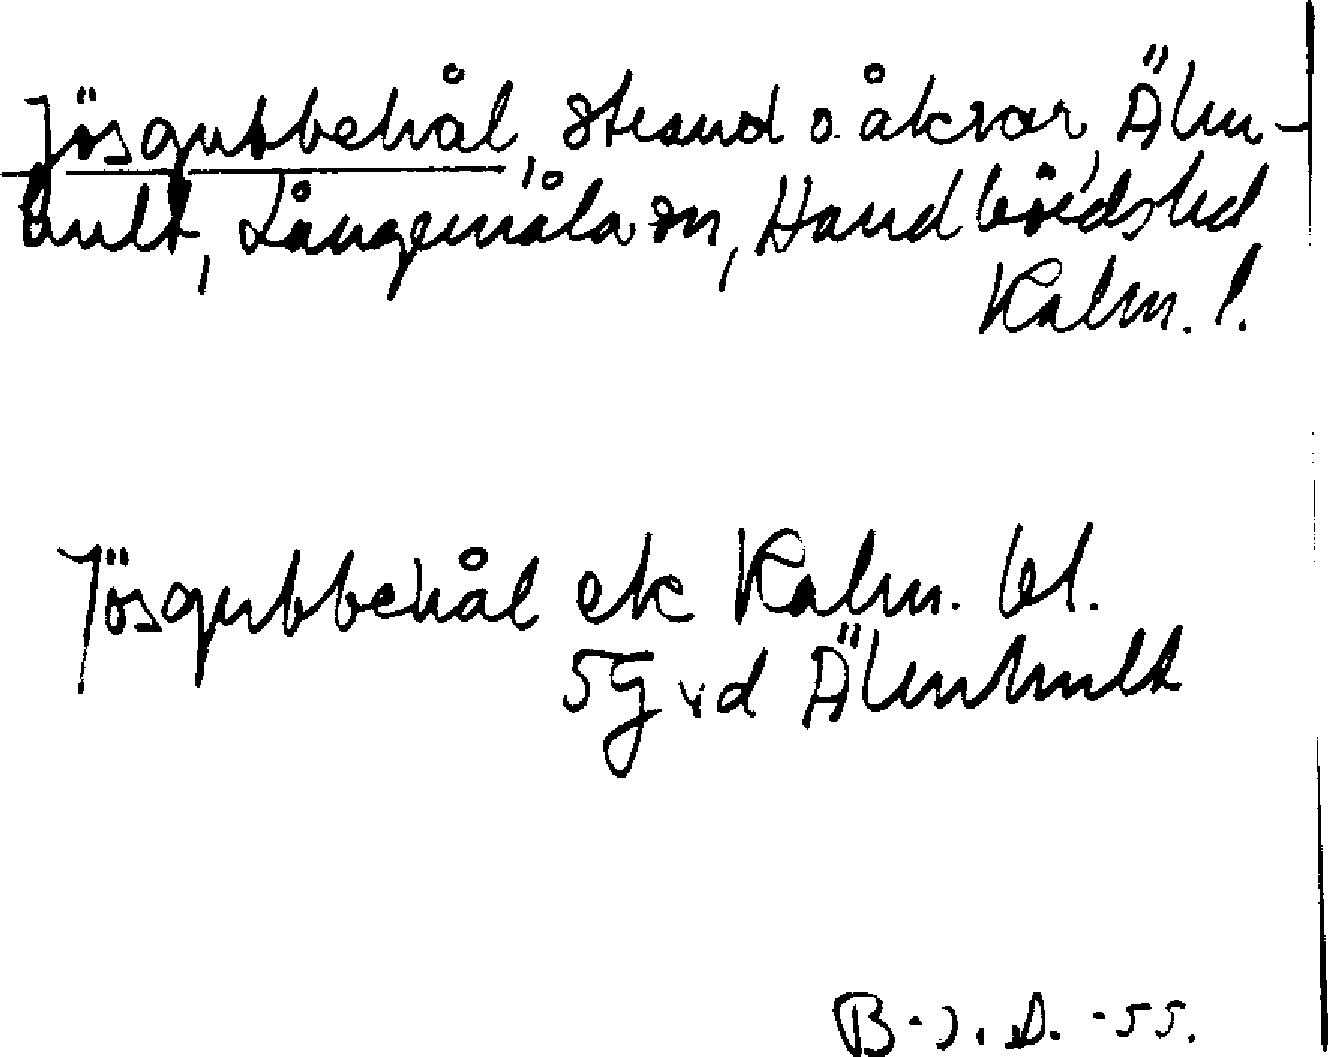 Jösgubbehål, strand o. åkrar, Älm-
hult, Långemåla sn, Handbörds hd
Kalm. l.
Jösgubbehål ek Kalm. bl.
5G vd Älmhult
B-J. D. -55.